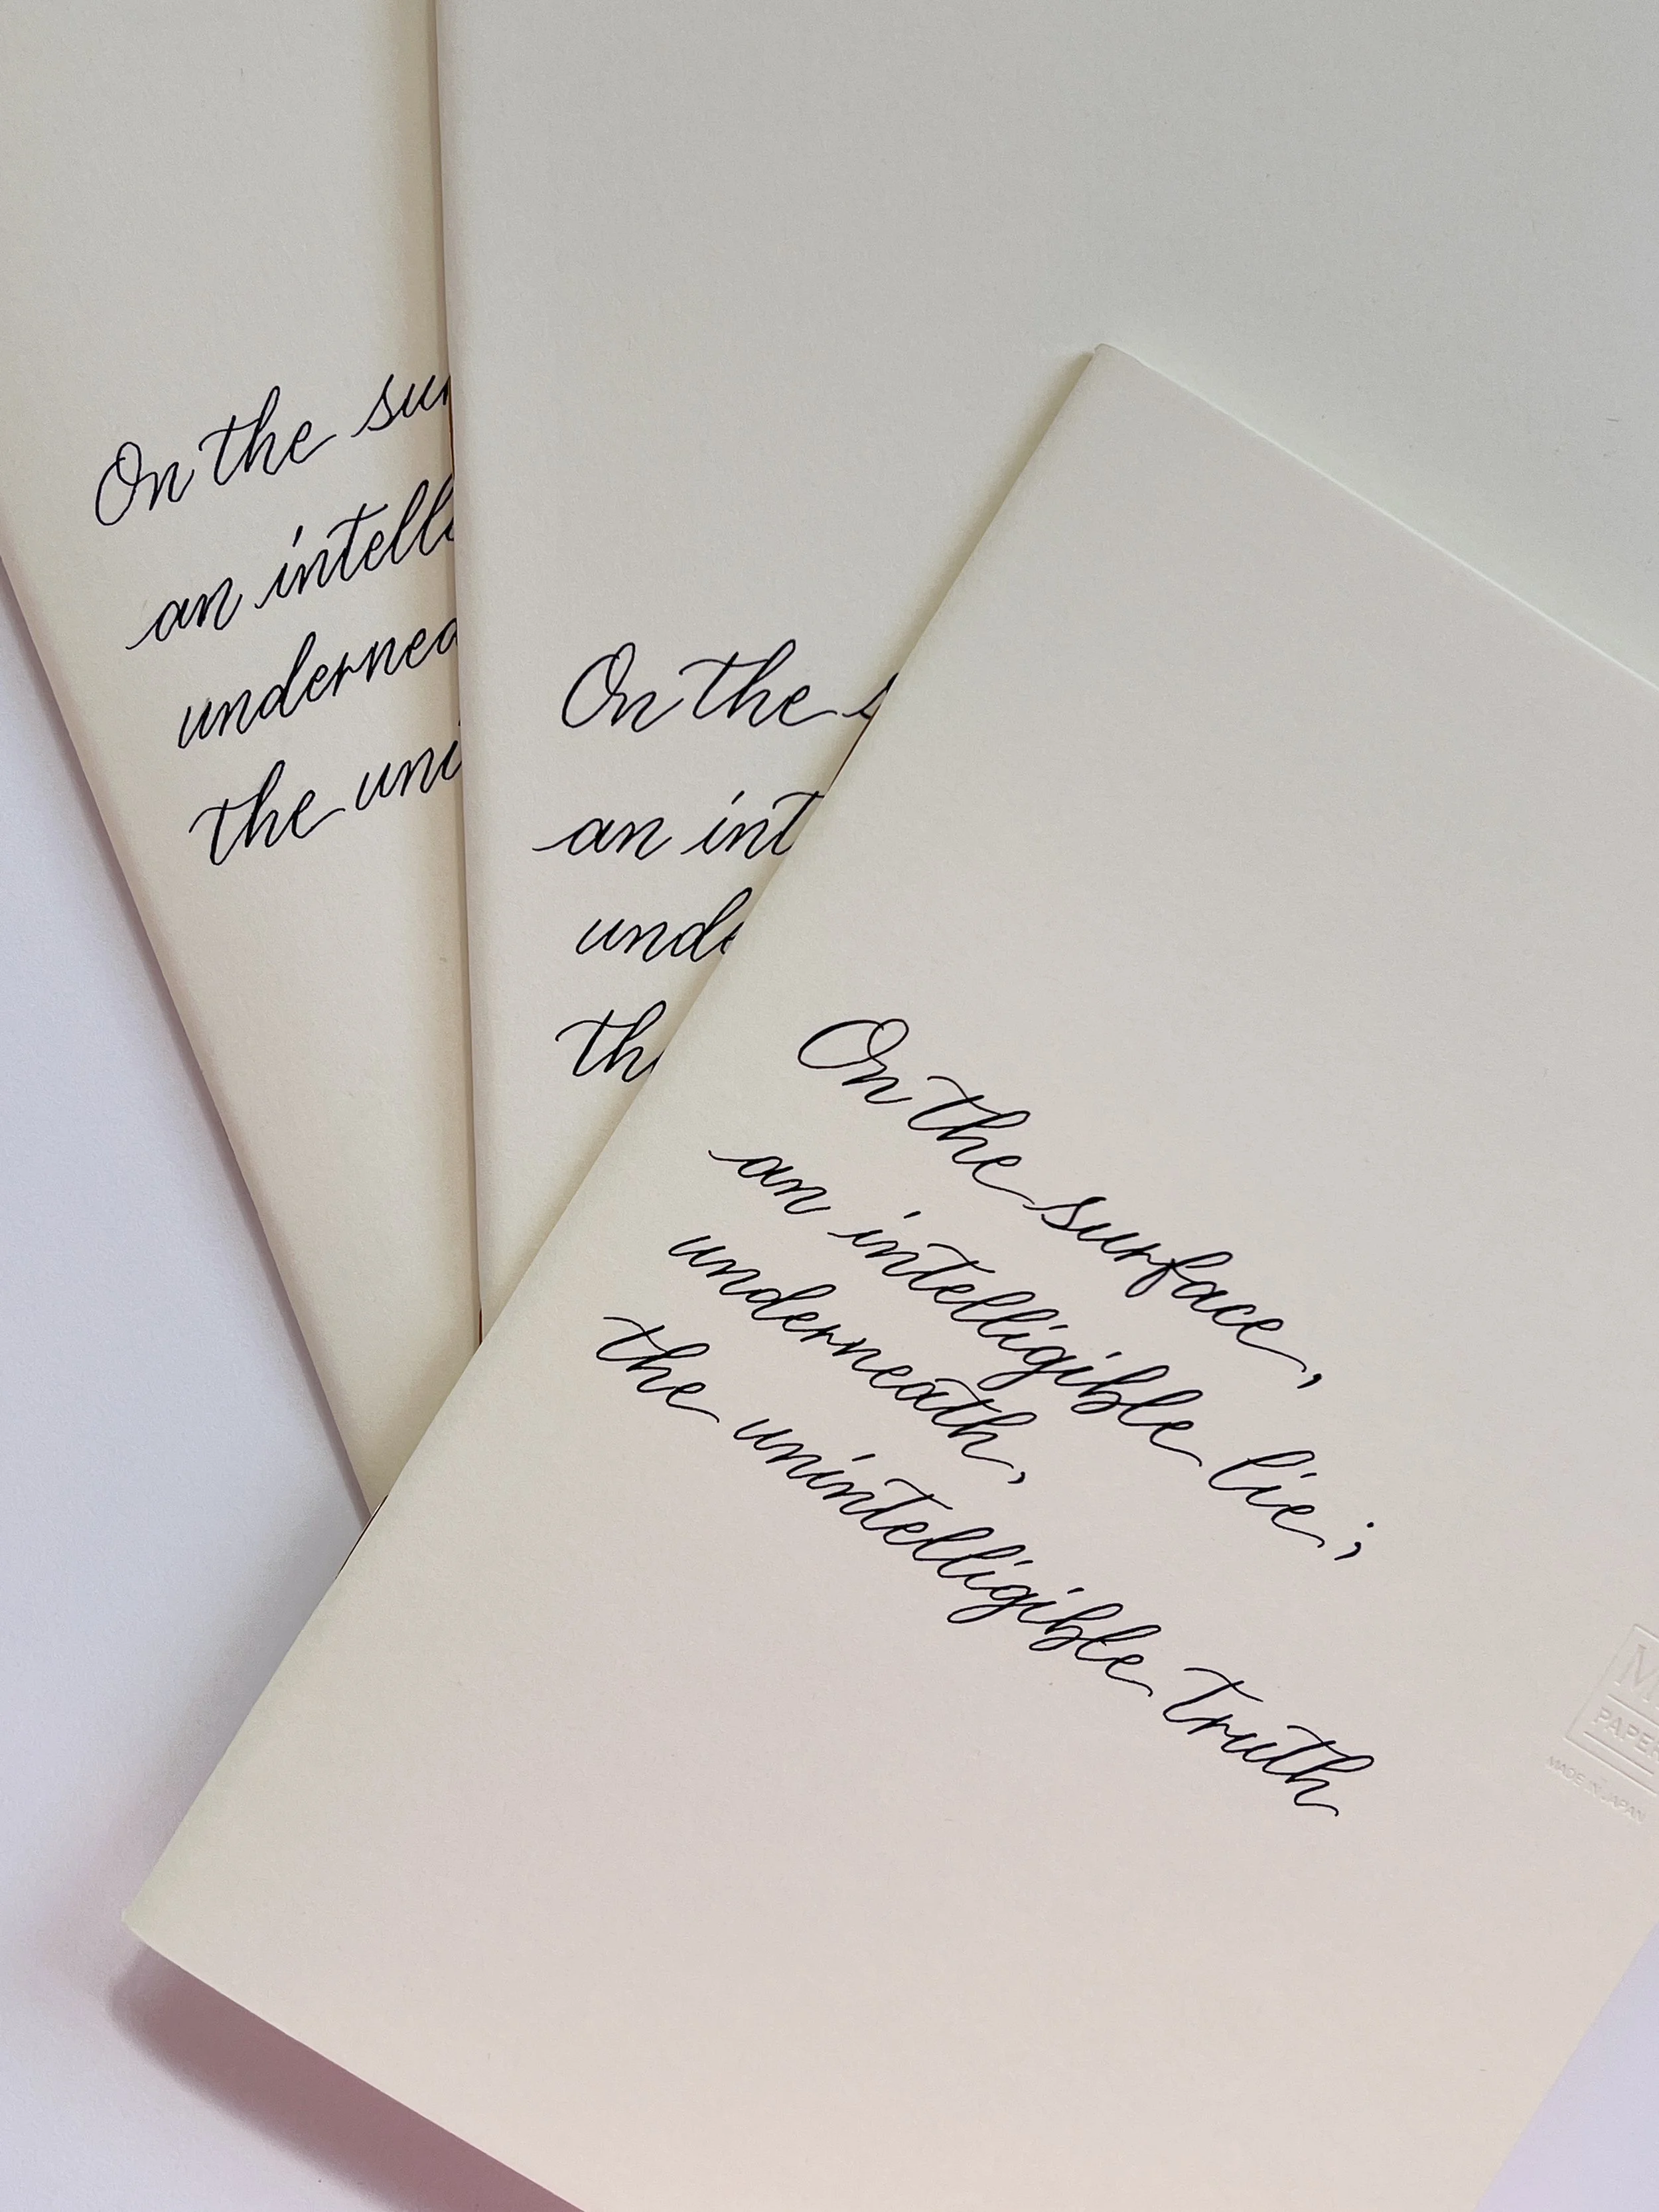 On the sur
an intelli
underned
the uni
On the s
an int
unde
the
On the surface,
an intelligible lie;
underneath,
the unintelligible truth
M
PAPER
MADE IN JAPAN